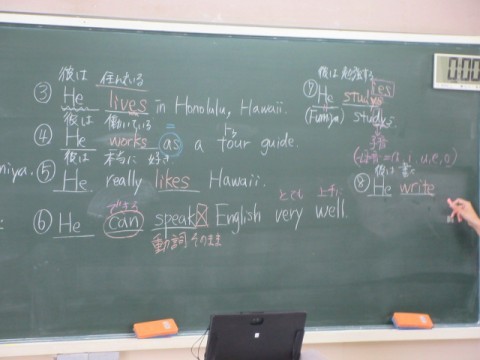 彼は 住んでいる
③ He lives in Honolulu, Hawaii.
彼は 働いている
④ He works as a tour guide.
彼は 本当に 好き
miya. ⑤ He really likes Hawaii.
できる とても 上手に
⑥ He can speak English very well.
動詞 そのまま
彼は 勉強する
⑦ He study ies
(Fumiya) studys.
子音
a, i, u, e, o)
彼は 書く
⑧ He write
0:00